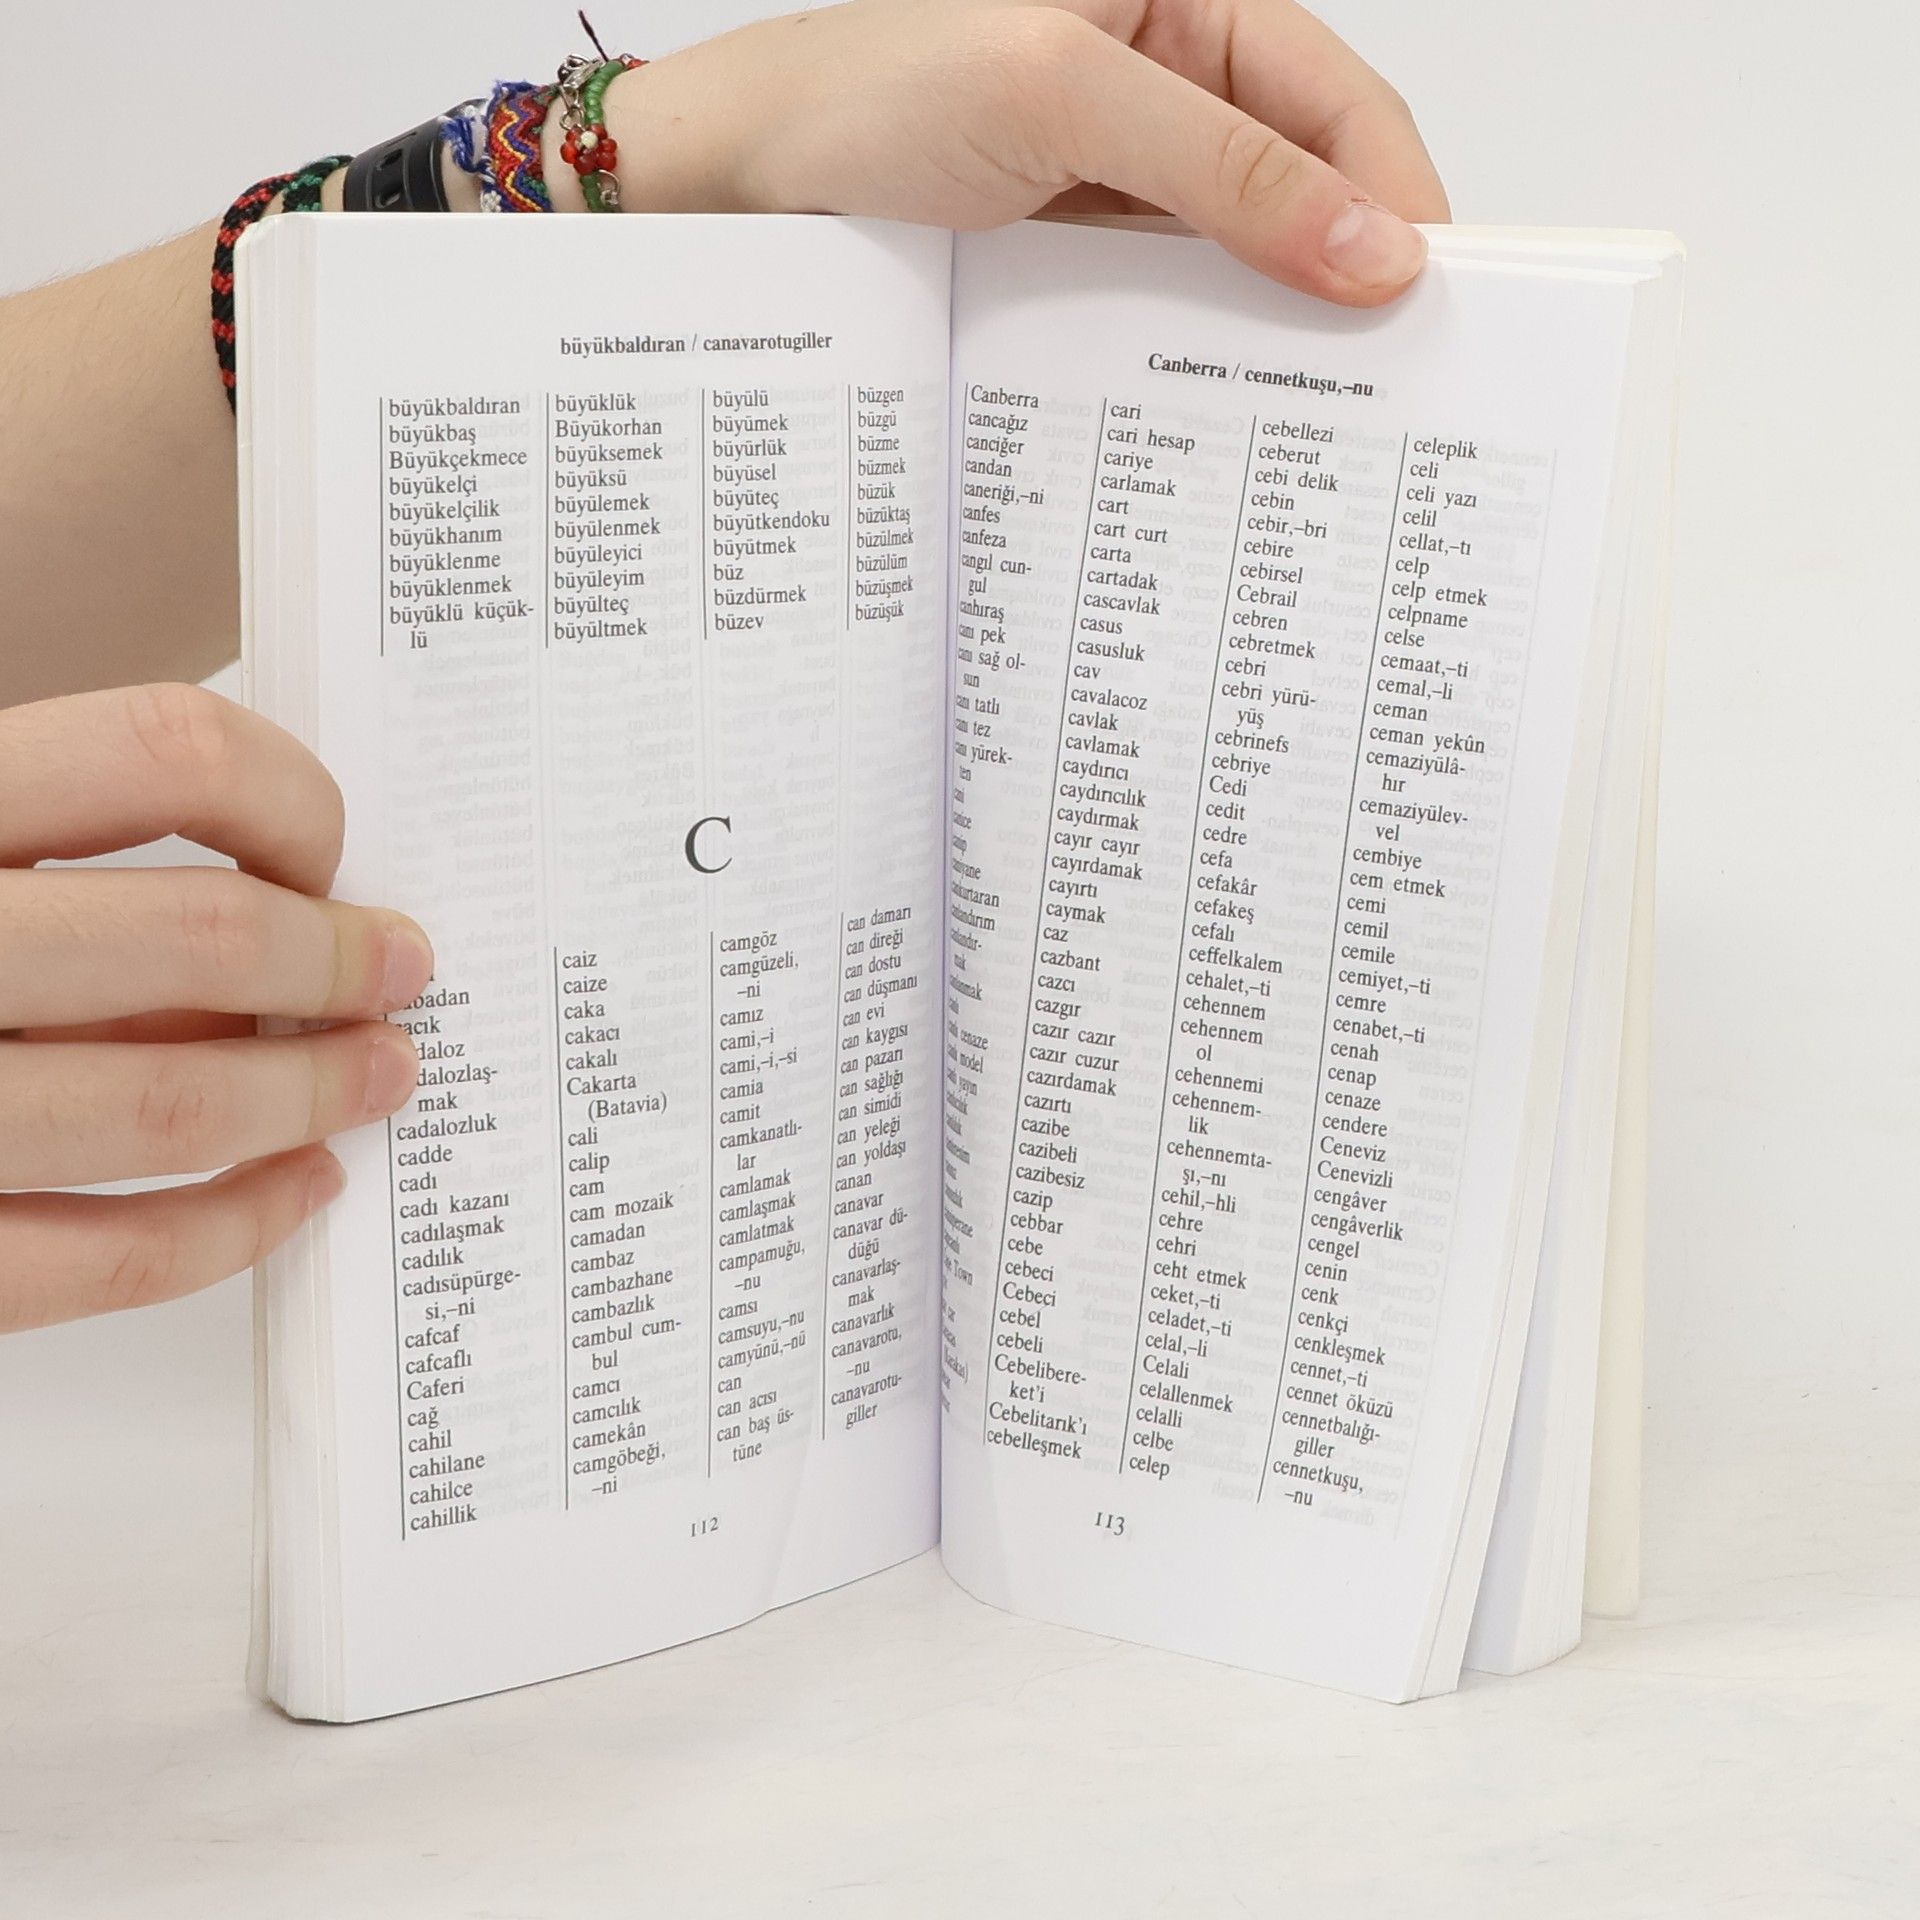 büyükbaldıran / canavarotugiller
büyükbaldıran
büyükbaş
Büyükçekmece
büyükelçi
büyükelçilik
büyükhanım
büyüklenme
büyüklenmek
büyüklü küçük-
lü
büyüklük
Büyükorhan
büyüksemek
büyüksü
büyülemek
büyülenmek
büyüleyici
büyüleyim
büyülteç
büyültmek
büyülü
büyümek
büyürlük
büyüsel
büyüteç
büyütkendoku
büyütmek
büz
büzdürmek
büzev
büzgen
büzgü
büzme
büzmek
büzük
büzüktaş
büzülmek
büzülüm
büzüşmek
büzüşük
C
mak
cadalozluk
cadde
cadı
cadı kazanı
cadılaşmak
cadılık
cadısüpürge-
si,–ni
cafcaf
cafcaflı
Caferi
cağ
cahil
cahilane
cahilce
cahillik
caiz
caize
caka
cakacı
cakalı
Cakarta
(Batavia)
cali
calip
cam
cam mozaik
camadan
cambaz
cambazhane
cambazlık
cambul cum-
bul
camcı
camcılık
camekân
camgöbeği,
–ni
camgöz
camgüzeli,
–ni
camız
cami,–i
cami,–i,–si
camia
camit
camkanatlı-
lar
camlamak
camlaşmak
camlatmak
campamuğu,
–nu
camsı
camsuyu,–nu
camyünü,–nü
can
can acısı
can baş üs-
tüne
can damarı
can direği
can dostu
can düşmanı
can evi
can kaygısı
can pazarı
can sağlığı
can simidi
can yeleği
can yoldaşı
canan
canavar
canavar dü-
düğü
canavarlaş-
mak
canavarlık
canavarotu,
–nu
canavarotu-
giller
112
Canberra / cennetkuşu,–nu
Canberra
cancağız
canciğer
candan
caneriği,–ni
canfes
canfeza
cangıl cun-
gul
canhıraş
canı pek
canı sağ ol-
sun
canı tatlı
canı tez
canı yürek-
ten
cari
cari hesap
cariye
carlamak
cart
cart curt
carta
cartadak
cascavlak
casus
casusluk
cav
cavalacoz
cavlak
cavlamak
caydırıcı
caydırıcılık
caydırmak
cayır cayır
cayırdamak
cayırtı
caymak
caz
cazbant
cazcı
cazgır
cazır cazır
cazır cuzur
cazırdamak
cazırtı
cazibe
cazibeli
cazibesiz
cazip
cebbar
cebe
cebeci
Cebeci
cebel
cebeli
Cebelibere-
ket'i
Cebelitarık'ı
cebelleşmek
cebellezi
ceberut
cebi delik
cebin
cebir,–bri
cebire
cebirsel
Cebrail
cebren
cebretmek
cebri
cebri yürü-
yüş
cebrinefs
cebriye
Cedi
cedit
cedre
cefa
cefakâr
cefakeş
cefalı
ceffelkalem
cehalet,–ti
cehennem
cehennem
ol
cehennemi
cehennem-
lik
cehennemta-
şı,–nı
cehil,–hli
cehre
cehri
ceht etmek
ceket,–ti
celadet,–ti
celal,–li
Celali
celallenmek
celalli
celbe
celep
celeplik
celi
celi yazı
celil
cellat,–tı
celp
celp etmek
celpname
celse
cemaat,–ti
cemal,–li
ceman
ceman yekûn
cemaziyülâ-
hır
cemaziyülev-
vel
cembiye
cem etmek
cemi
cemil
cemile
cemiyet,–ti
cemre
cenabet,–ti
cenah
cenap
cenaze
cendere
Ceneviz
Cenevizli
cengâver
cengâverlik
cengel
cenin
cenk
cenkçi
cenkleşmek
cennet,–ti
cennet öküzü
cennetbalığı-
giller
cennetkuşu,
–nu
113